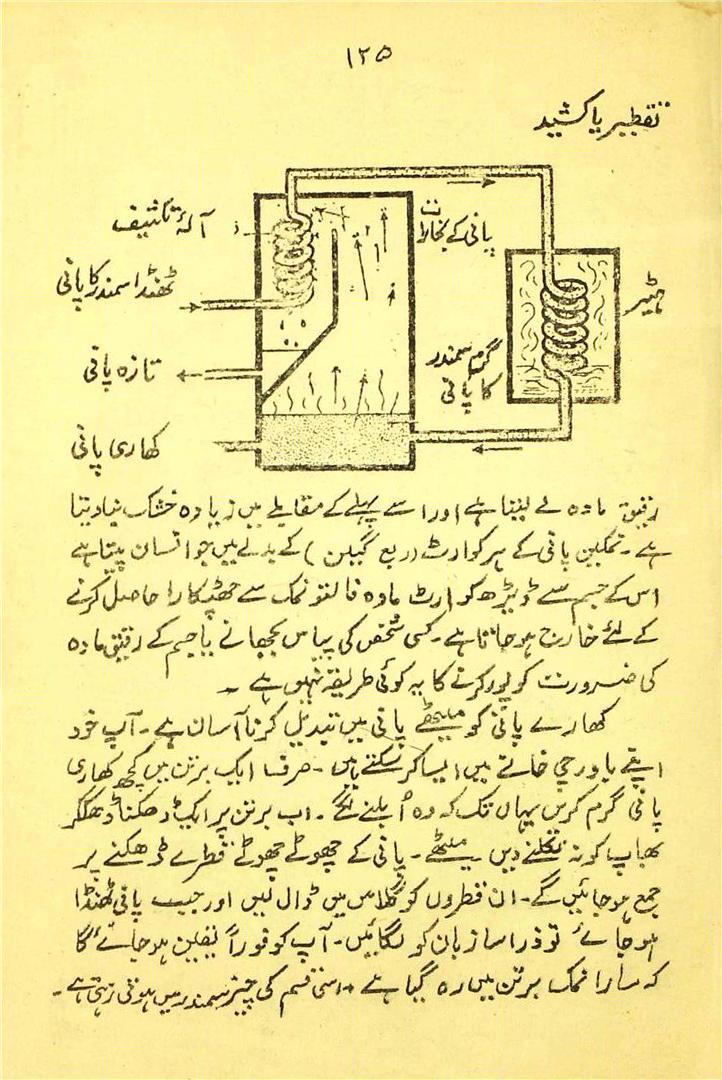 ۱۲۵
تقطیر یا کشید
آلۂ تکثیف
پانی کے بخارات
ٹھنڈا سمندر کا پانی
ہیٹر
تازہ پانی
گرم سمندر
کا پانی
کھاری پانی
رقیق مادہ لے لیتا ہے اور اسے پہلے کے مقابلے میں زیادہ خشک بنا دیتا
ہے۔ نمکین پانی کے ہر کوارٹ (ربع گیلن) کے بدلے میں جو انسان پیتا ہے
اس کے جسم سے ڈیڑھ کوارٹ مادہ فالتو نمک سے چھٹکارا حاصل کرنے
کے لئے خارج ہو جاتا ہے۔ کسی شخص کی پیاس بجھانے یا جسم کے رقیق مادہ
کی ضرورت کو پورا کرنے کا یہ کوئی طریقہ نہیں ہے۔
کھارے پانی کو میٹھے پانی میں تبدیل کرنا آسان ہے۔ آپ خود
اپنے باورچی خانے میں ایسا کر سکتے ہیں۔ صرف ایک برتن میں کچھ کھاری
پانی گرم کریں یہاں تک کہ وہ اُبلنے لگے۔ اب برتن پر ایک ڈھکنا ڈھک کر
بھاپ کو نہ نکلنے دیں۔ میٹھے۔ پانی کے چھوٹے چھوٹے قطرے ڈھکنے پر
جمع ہو جائیں گے۔ ان قطروں کو گلاس میں ڈال لیں اور جب پانی ٹھنڈا
ہو جائے تو ذرا سا زبان کو لگائیں۔ آپ کو فوراً یقین ہو جائے گا
کہ سارا نمک برتن میں رہ گیا ہے۔ اسی قسم کی چیز سمندر میں ہوتی رہتی ہے۔